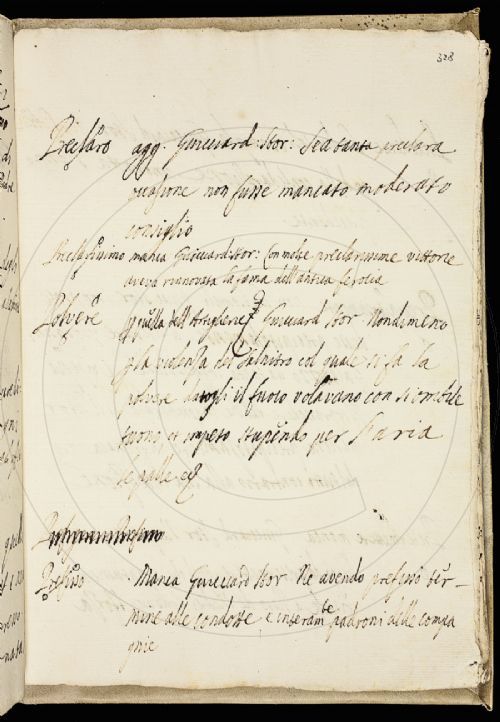 328
Preclaro agg. Guicciard: Stor: Se a tanta preclara
occasione non fusse mancato moderato
consiglio
Preclarissimo manca Guicciard Stor: Con molte preclarissime vittorie
aveva rinnovata la fama dell'antica ferocia
Polvere quella dell'Artiglierie Guicciard Stor Nondimeno
p la violenza del salnitro col quale si fa la
polvere datogli il fuoco volavano con si orribile
tuono, et impeto stupendo per l'aria
le palle
Prefisso Manca Guicciard Stor Ne avendo prefisso ter-
mine alle condotte e interamte padroni delle compa
gnie